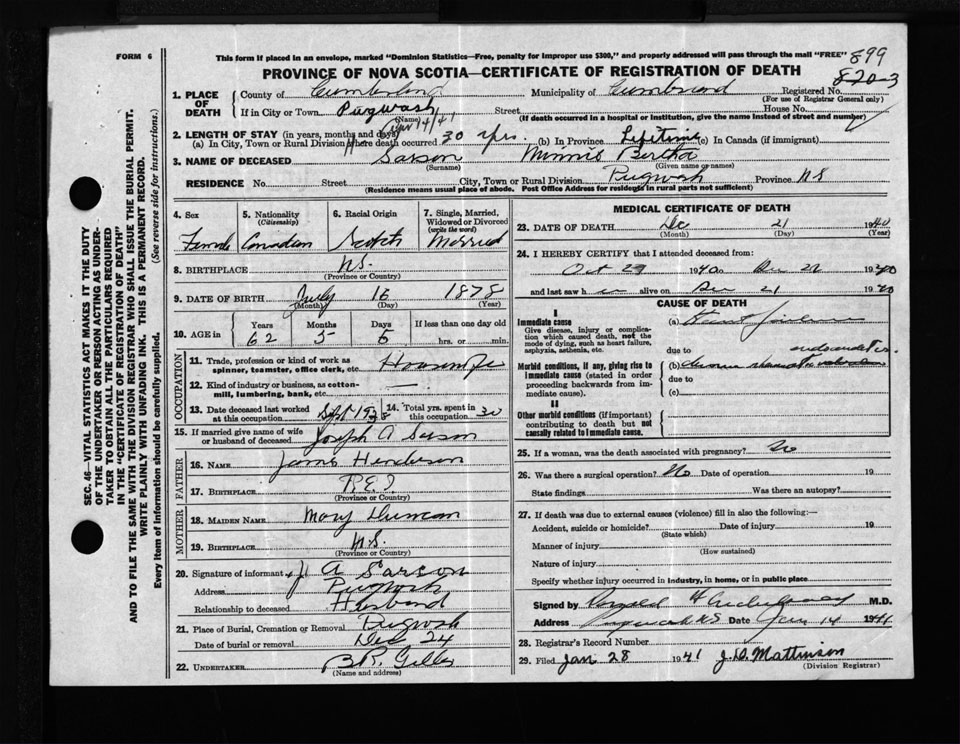 FORM 6
This form if placed in an envelope, marked "Dominion Statistics—Free, penalty for improper use $300," and properly addressed will pass through the mail "FREE"
899
820-3
PROVINCE OF NOVA SCOTIA—CERTIFICATE OF REGISTRATION OF DEATH
1. PLACE OF DEATH
County of Cumberland Municipality of Cumberland Registered No.
(For use of Registrar General only)
If in City or Town Pugwash Street House No.
(Name) (If death occurred in a hospital or institution, give the name instead of street and number)
2. LENGTH OF STAY (in years, months and days)
(a) In City, Town or Rural Division where death occurred 30 yrs. (b) In Province Lifetime (c) In Canada (if immigrant)
3. NAME OF DECEASED Sarson Minnie Bertha
(Surname) (Given name or names)
RESIDENCE No. Street City, Town or Rural Division Pugwash Province N.S.
(Residence means usual place of abode. Post Office Address for residents in rural parts not sufficient)
4. Sex
Female
5. Nationality
(Citizenship)
Canadian
6. Racial Origin
Scotch
7. Single, Married, Widowed or Divorced
(write the word)
Married
8. BIRTHPLACE N.S.
(Province or Country)
9. DATE OF BIRTH July 16 1878
(Month) (Day) (Year)
10. AGE in
Years Months Days If less than one day old
62 5 5 hrs. or min.
OCCUPATION
11. Trade, profession or kind of work as spinner, teamster, office clerk, etc. Housewife
12. Kind of industry or business, as cotton-mill, lumbering, bank, etc. —
13. Date deceased last worked at this occupation Sept 1938
14. Total yrs. spent in this occupation 30
15. If married give name of wife or husband of deceased Joseph A Sarson
FATHER
16. NAME James Henderson
17. BIRTHPLACE P.E.I
(Province or Country)
MOTHER
18. MAIDEN NAME Mary Duncan
19. BIRTHPLACE N.S.
(Province or Country)
20. Signature of informant J A Sarson
Address Pugwash
Relationship to deceased Husband
21. Place of Burial, Cremation or Removal Pugwash
Date of burial or removal Dec 24
22. UNDERTAKER B.R. Gilles
(Name and address)
MEDICAL CERTIFICATE OF DEATH
23. DATE OF DEATH Dec 21 1940
(Month) (Day) (Year)
24. I HEREBY CERTIFY that I attended deceased from:
Oct 27 1940 to Dec 21 1940
and last saw h alive on Dec 21 1940
CAUSE OF DEATH
I
Immediate cause
Give disease, injury or complication which caused death, not the mode of dying, such as heart failure, asphyxia, asthenia, etc.
(a) Heart failure
due to
Morbid conditions, if any, giving rise to immediate cause (stated in order proceeding backwards from immediate cause).
(b)
due to
(c)
II
Other morbid conditions (if important) contributing to death but not causally related to immediate cause.
25. If a woman, was the death associated with pregnancy? No
26. Was there a surgical operation? No Date of operation 19
State findings Was there an autopsy?
27. If death was due to external causes (violence) fill in also the following:—
Accident, suicide or homicide? Date of injury 19
(State which)
Manner of injury
(How sustained)
Nature of injury
Specify whether injury occurred in industry, in home, or in public place
Signed by Donald M.D.
Address Pugwash N.S Date Jan 14 1941
28. Registrar's Record Number
29. Filed Jan 28 1941 J.D. Mattinson
(Division Registrar)
SEC. 46—VITAL STATISTICS ACT MAKES IT THE DUTY
OF THE UNDERTAKER OR PERSON ACTING AS UNDER-
TAKER TO OBTAIN ALL THE PARTICULARS REQUIRED
IN THE "CERTIFICATE OF REGISTRATION OF DEATH"
AND TO FILE THE SAME WITH THE DIVISION REGISTRAR WHO SHALL ISSUE THE BURIAL PERMIT.
WRITE PLAINLY WITH UNFADING INK. THIS IS A PERMANENT RECORD.
Every item of information should be carefully supplied. (See reverse side for instructions.)